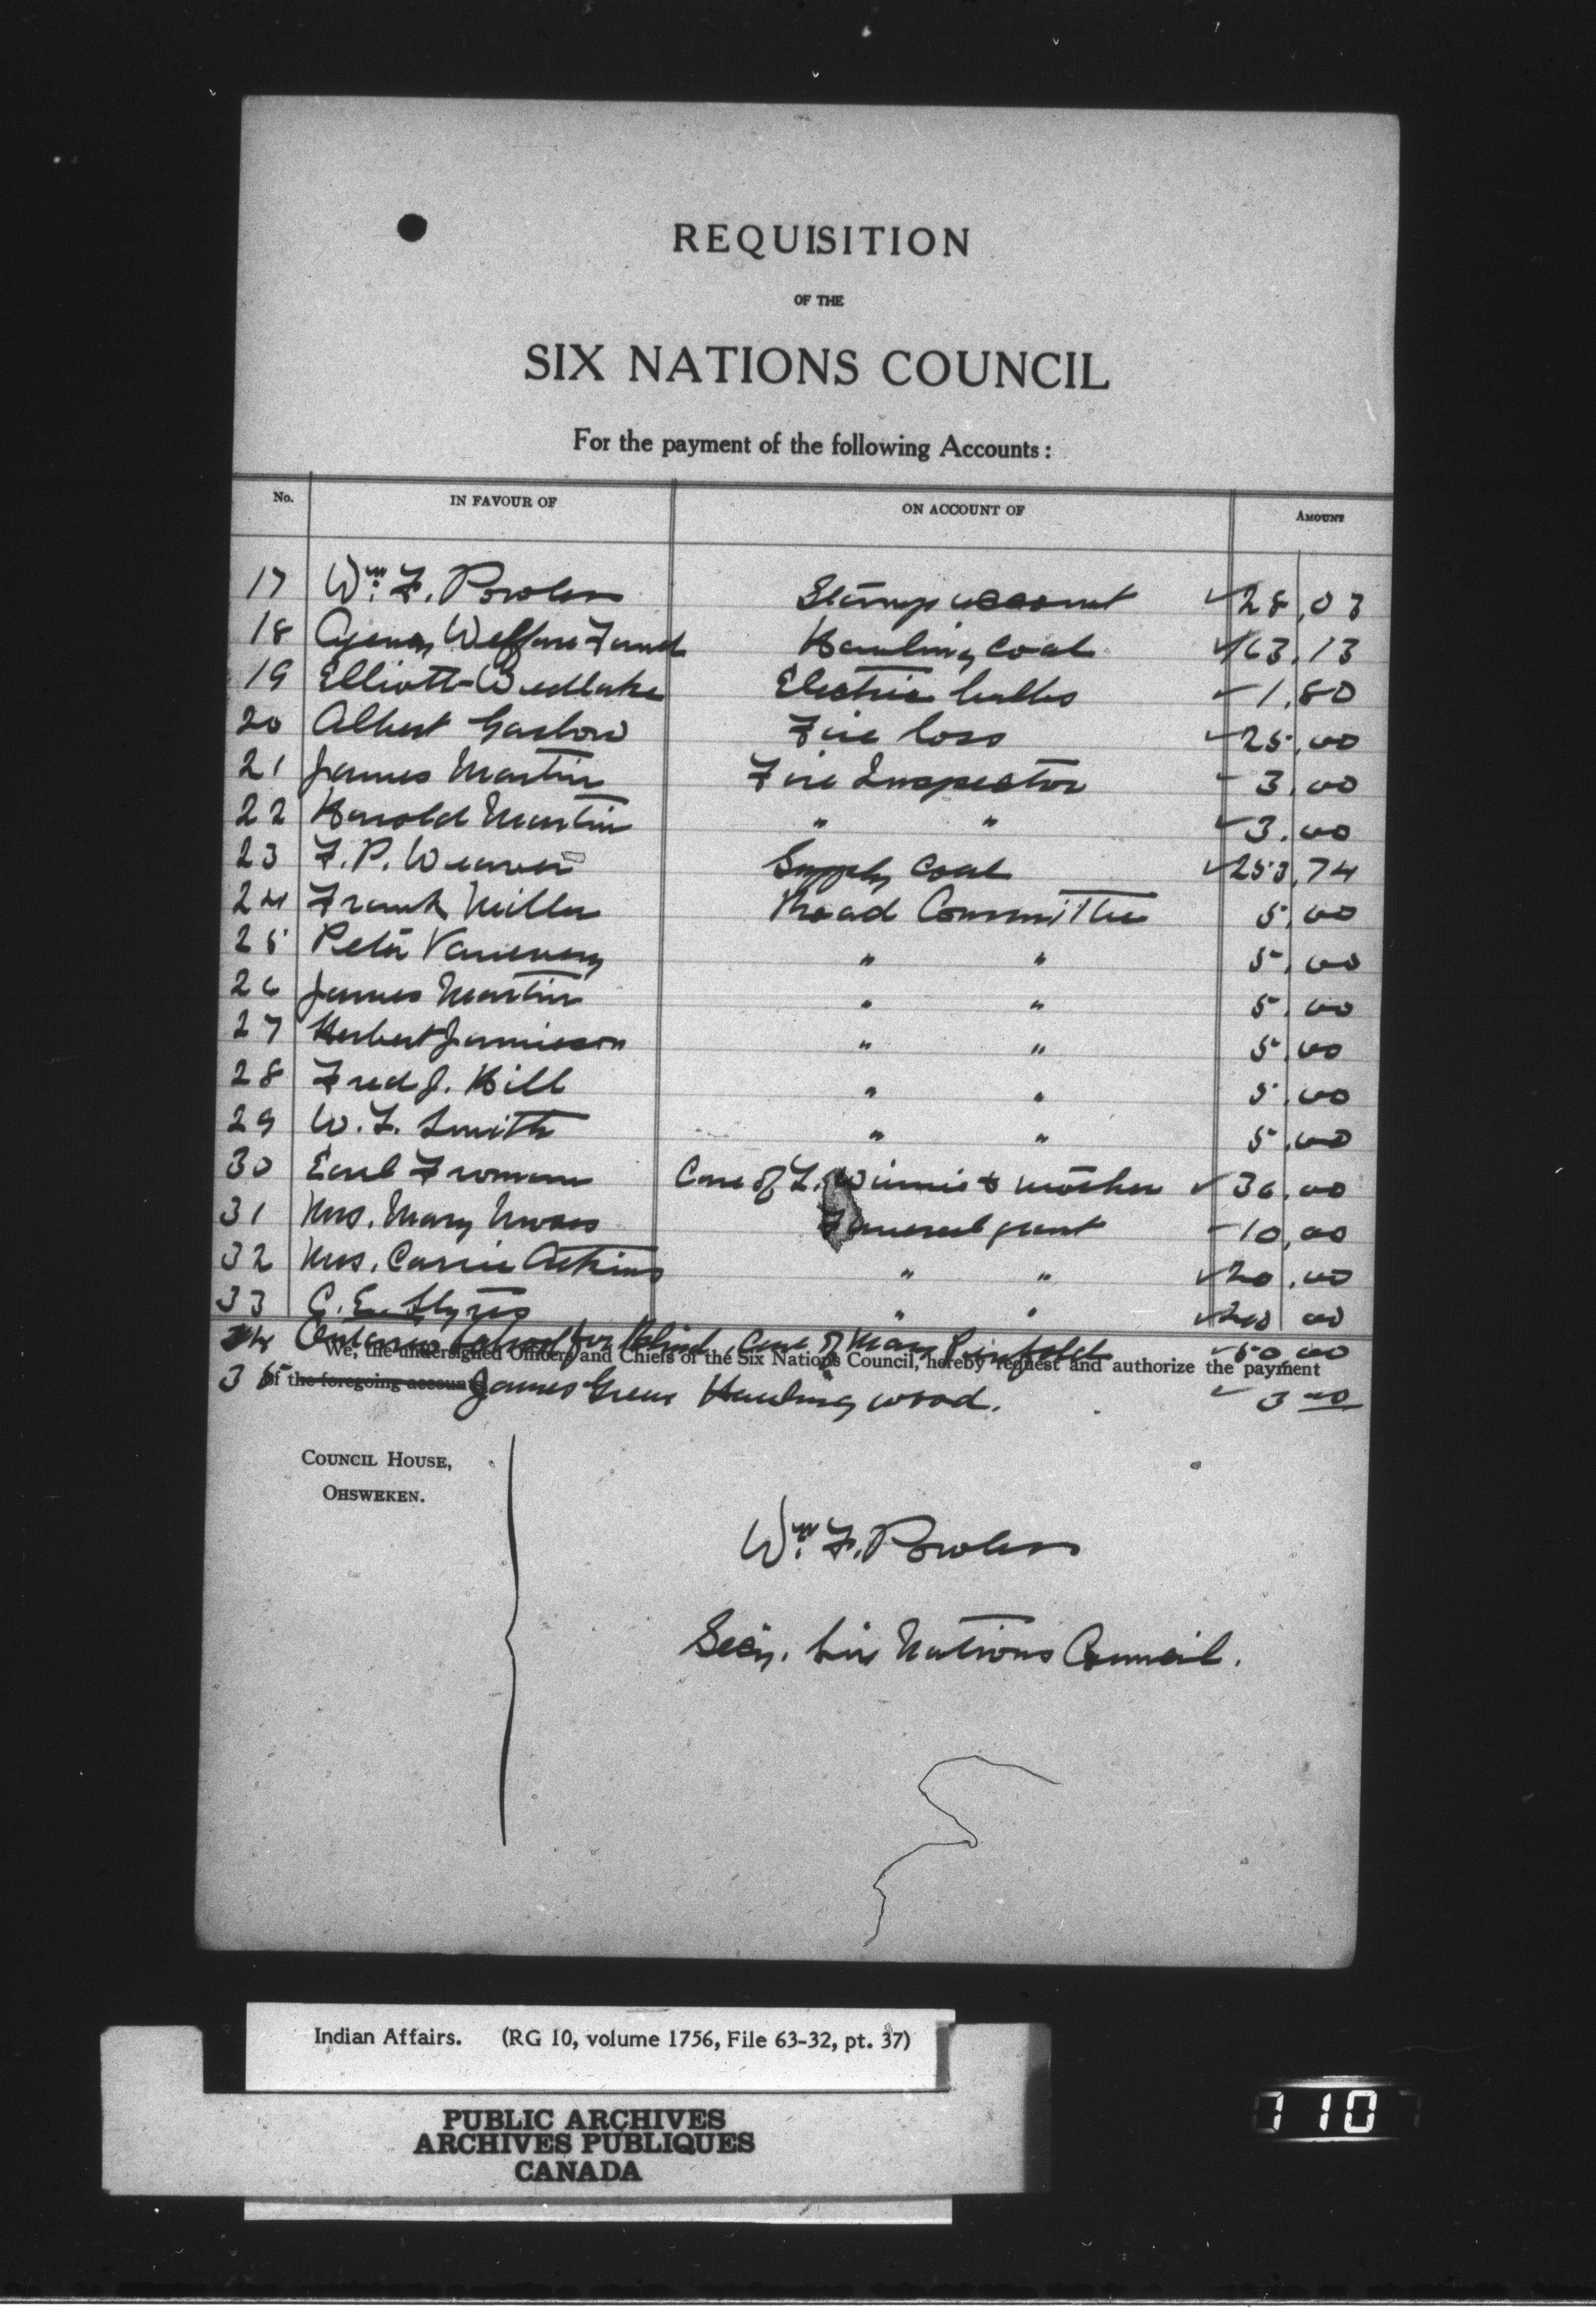 REQUISITION
OF THE
SIX NATIONS COUNCIL
For the payment of the following Accounts:
No. IN FAVOUR OF ON ACCOUNT OF AMOUNT
17 Wm. F. Powless Stamp account 28.03
18 Agency Welfare Fund Hauling coal 63.13
19 Elliott-Woodlake Electric bulbs 1.80
20 Albert Garlow Fire loss 25.00
21 James Martin Fire Inspector 3.00
22 Harold Martin " " 3.00
23 F. P. Weaver Supply coal 253.74
24 Frank Miller Road Committee 5.00
25 Peter Vanevery " " 5.00
26 James Martin " " 5.00
27 Herbert Jamieson " " 5.00
28 Fred J. Hill " " 5.00
29 W. F. Smith " " 5.00
30 Earl Froman Care of F. Winnie & mother 30.00
31 Mrs. Mary Funeral grant 10.00
32 Mrs. Carrie Atkins " " 20.00
33 C. E. Styres " " 00
34 Ontario School for Blind, Care of Mary Pinfold 50.00
We, the undersigned Officers and Chiefs of the Six Nations Council, hereby request and authorize the payment
of the foregoing account
35 James Green Hauling wood. 3.00
COUNCIL HOUSE,
OHSWEKEN.
Wm. F. Powless
Secy. Six Nations Council.
Indian Affairs. (RG 10, volume 1756, File 63-32, pt. 37)
PUBLIC ARCHIVES
ARCHIVES PUBLIQUES
CANADA
110